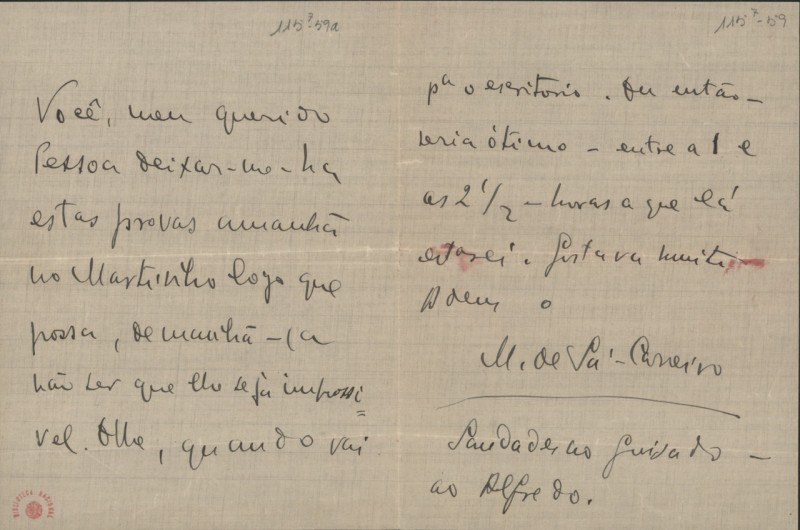 115⁷-59a
Você, meu querido
Pessoa deixar-me-ha
estas provas amanhã
no Martinho logo que
possa, de manhã - (a
não ser que lhe seja impossi
vel. Olhe, quando vai
BIBLIOTECA NACIONAL
115⁷-59
pª o escritorio. Ou então -
seria ótimo - entre a 1 e
as 2 1/2 - horas a que lá
estarei. Gostava muito
Adeus o
M. de Sá-Carneiro
Saudades ao Guisado -
ao Alfredo.